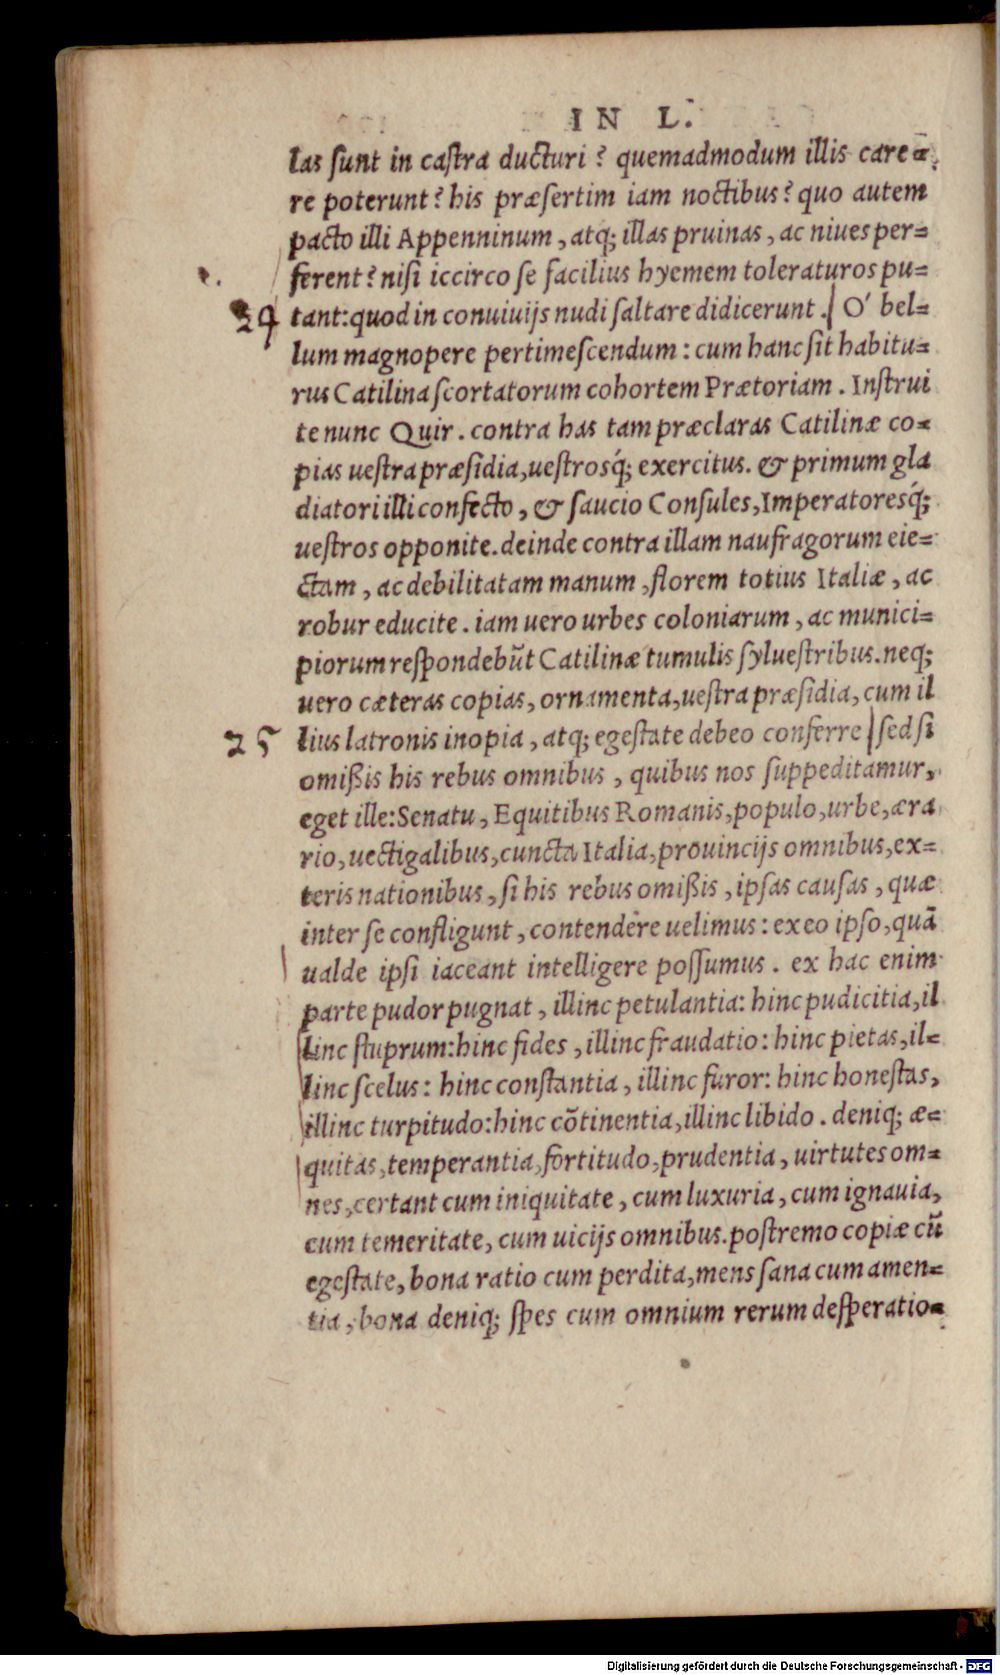 IN L.
las sunt in castra ducturi? quemadmodum illis care=
re poterunt? his præsertim iam noctibus? quo autem
pacto illi Appenninum, atq; illas pruinas, ac niues per=
ferent? nisi iccirco se facilius hyemem toleraturos pu=
24 tant: quod in conuiuijs nudi saltare didicerunt. | O' bel=
lum magnopere pertimescendum: cum hanc sit habitu=
rus Catilina scortatorum cohortem Prætoriam. Instrui
te nunc Quir. contra has tam præclaras Catilinæ co=
pias uestra præsidia, uestrosq́; exercitus. & primum gla
diatori illi confecto, & saucio Consules, Imperatoresq́;
uestros opponite. deinde contra illam naufragorum eie=
ctam, ac debilitatam manum, florem totius Italiæ, ac
robur educite. iam uero urbes coloniarum, ac munici=
piorum respondebūt Catilinæ tumulis syluestribus. neq;
uero cæteras copias, ornamenta, uestra præsidia, cum il
25 lius latronis inopia, atq; egestate debeo conferre | sed si
omißis his rebus omnibus, quibus nos suppeditamur,
eget ille: Senatu, Equitibus Romanis, populo, urbe, æra
rio, uectigalibus, cuncta Italia, prouincijs omnibus, ex=
teris nationibus, si his rebus omißis, ipsas causas, quæ
inter se confligunt, contendere uelimus: ex eo ipso, quā
ualde ipsi iaceant intelligere possumus. ex hac enim
parte pudor pugnat, illinc petulantia: hinc pudicitia, il
linc stuprum: hinc fides, illinc fraudatio: hinc pietas, il=
linc scelus: hinc constantia, illinc furor: hinc honestas,
illinc turpitudo: hinc cōtinentia, illinc libido. deniq; æ=
quitas, temperantia, fortitudo, prudentia, uirtutes om=
nes, certant cum iniquitate, cum luxuria, cum ignauia,
cum temeritate, cum uicijs omnibus. postremo copiæ cū
egestate, bona ratio cum perdita, mens sana cum amen=
tia, bona deniq; spes cum omnium rerum desperatio=
Digitalisierung gefördert durch die Deutsche Forschungsgemeinschaft - DFG